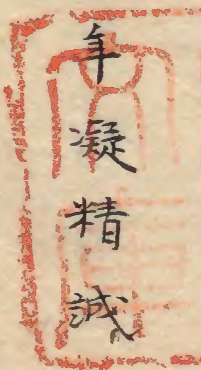 年凝精誠